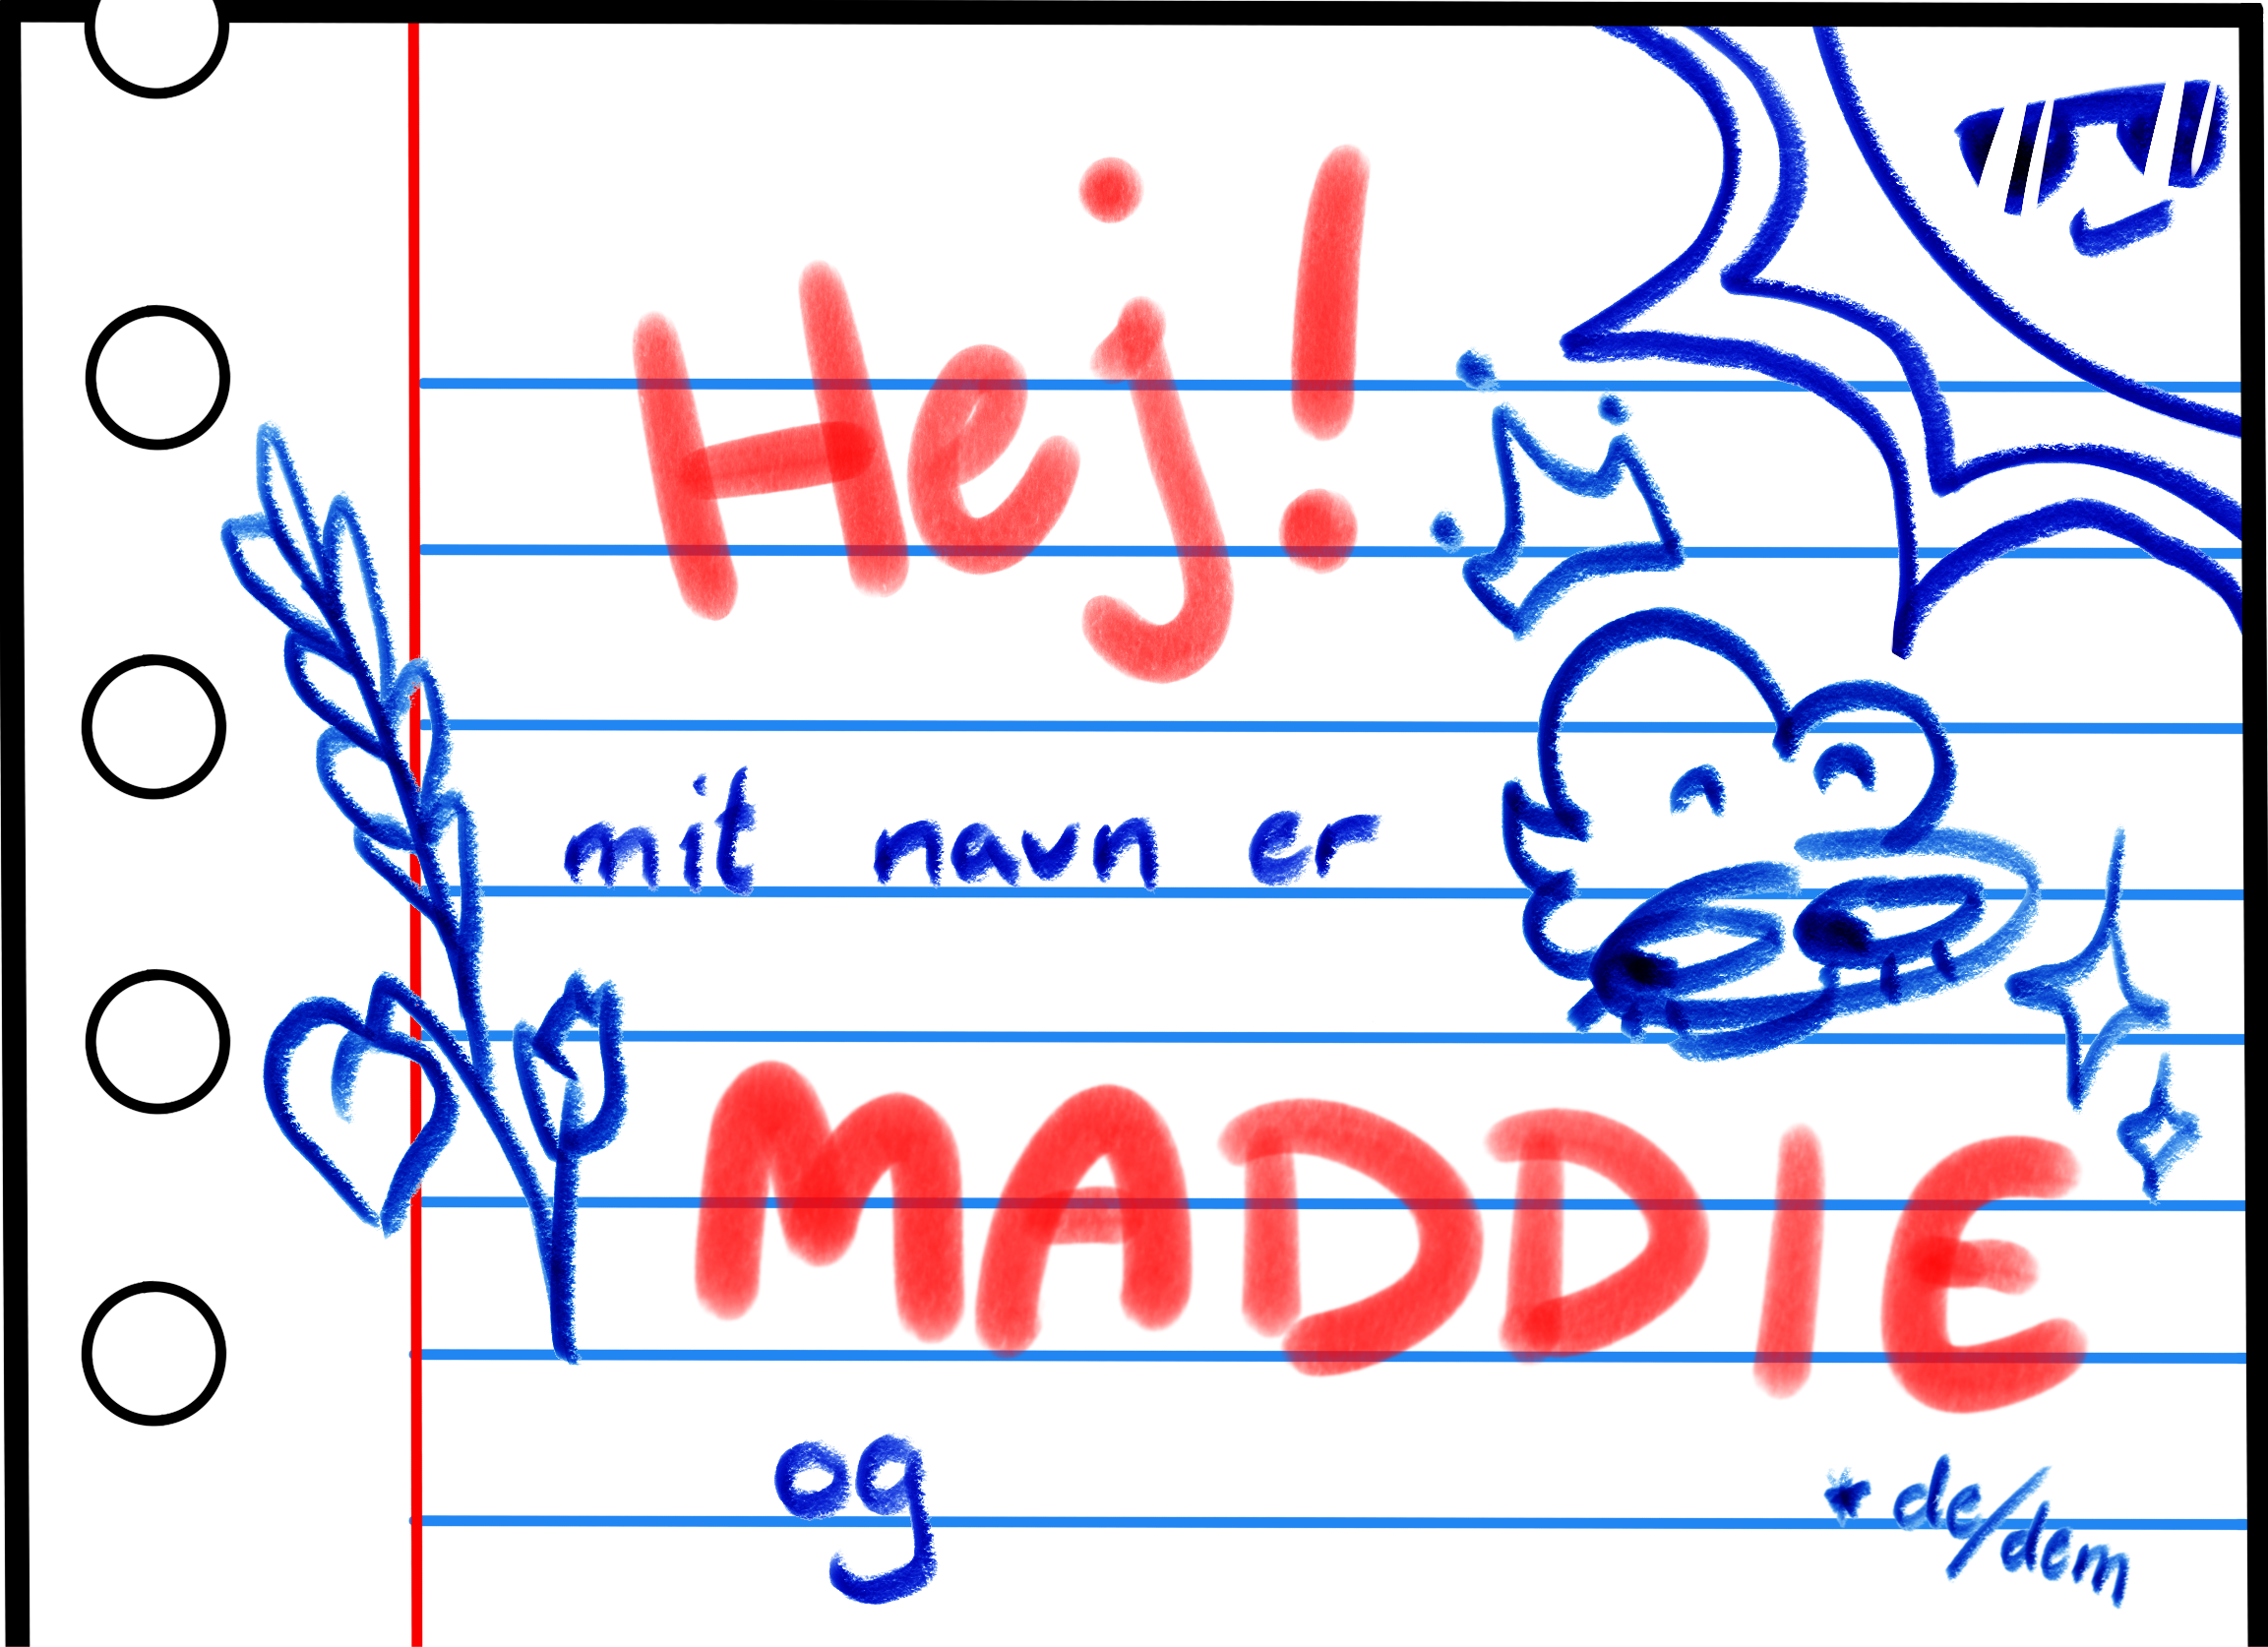 Hej!
mit navn er
MADDIE
og
*de/dem